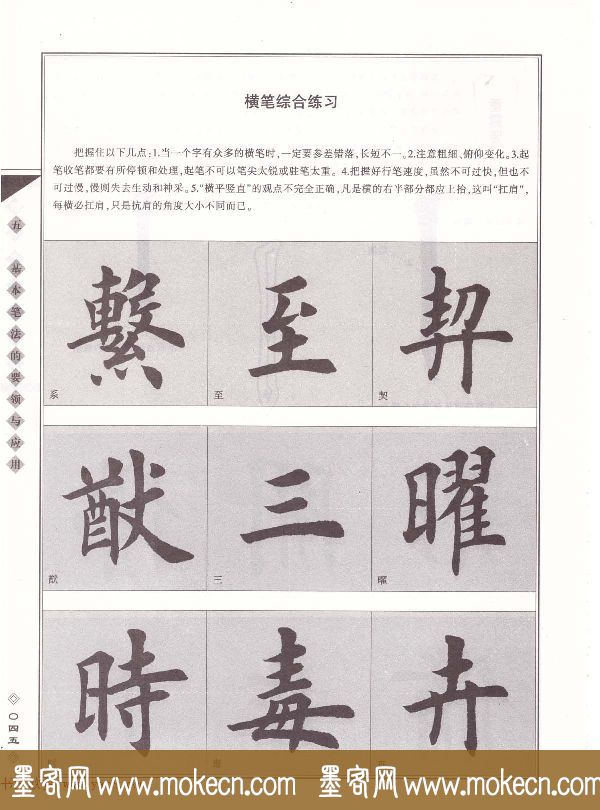 横笔综合练习
把握住以下几点:1.当一个字有众多的横笔时,一定要参差错落,长短不一。2.注意粗细、俯仰变化。3.起
笔收笔都要有所停顿和处理,起笔不可以笔尖太锐或驻笔太重。 4.把握好行笔速度,虽然不可过快,但也不
可过慢,慢则失去生动和神采。5.“横平竖直”的观点不完全正确,凡是横的右半部分都应上抬,这叫“扛肩”,
每横必扛肩,只是抗肩的角度大小不同而已。
五 基本笔法的要领与应用
繫 至 契
系 至 契
猷 三 曜
猷 三 曜
時 毒 卉
〇四五
墨客网 www.mokecn.com 墨客网 www.mokecn.com